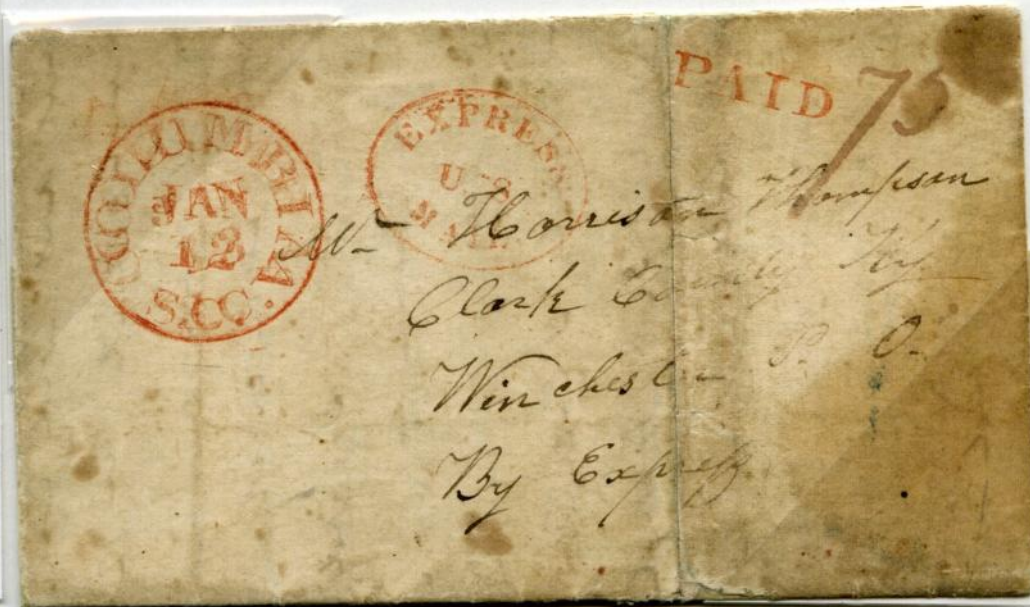 COLUMBIA
JAN
12
S.C.
EXPRESS
U.S.
MAIL
PAID 75
Mr Harrison Thompson
Clark County Ky
Winchester P. O.
By Express